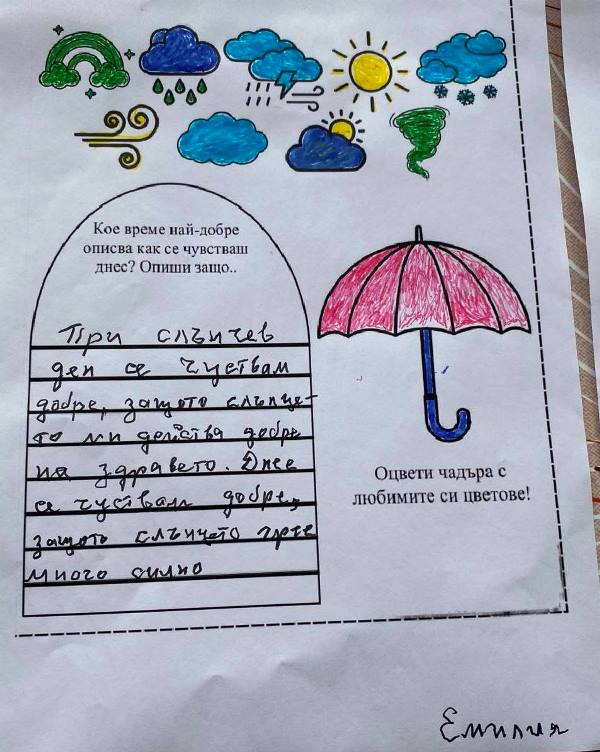 Кое време най-добре
описва как се чувстваш
днес? Опиши защо..
При слънчев
ден се чуствам
добре, защото слънце-
то ми действа добре
на здравето. Днес
се чуствам добре,
защото слънцето грее
много силно
Оцвети чадъра с
любимите си цветове!
Емилия